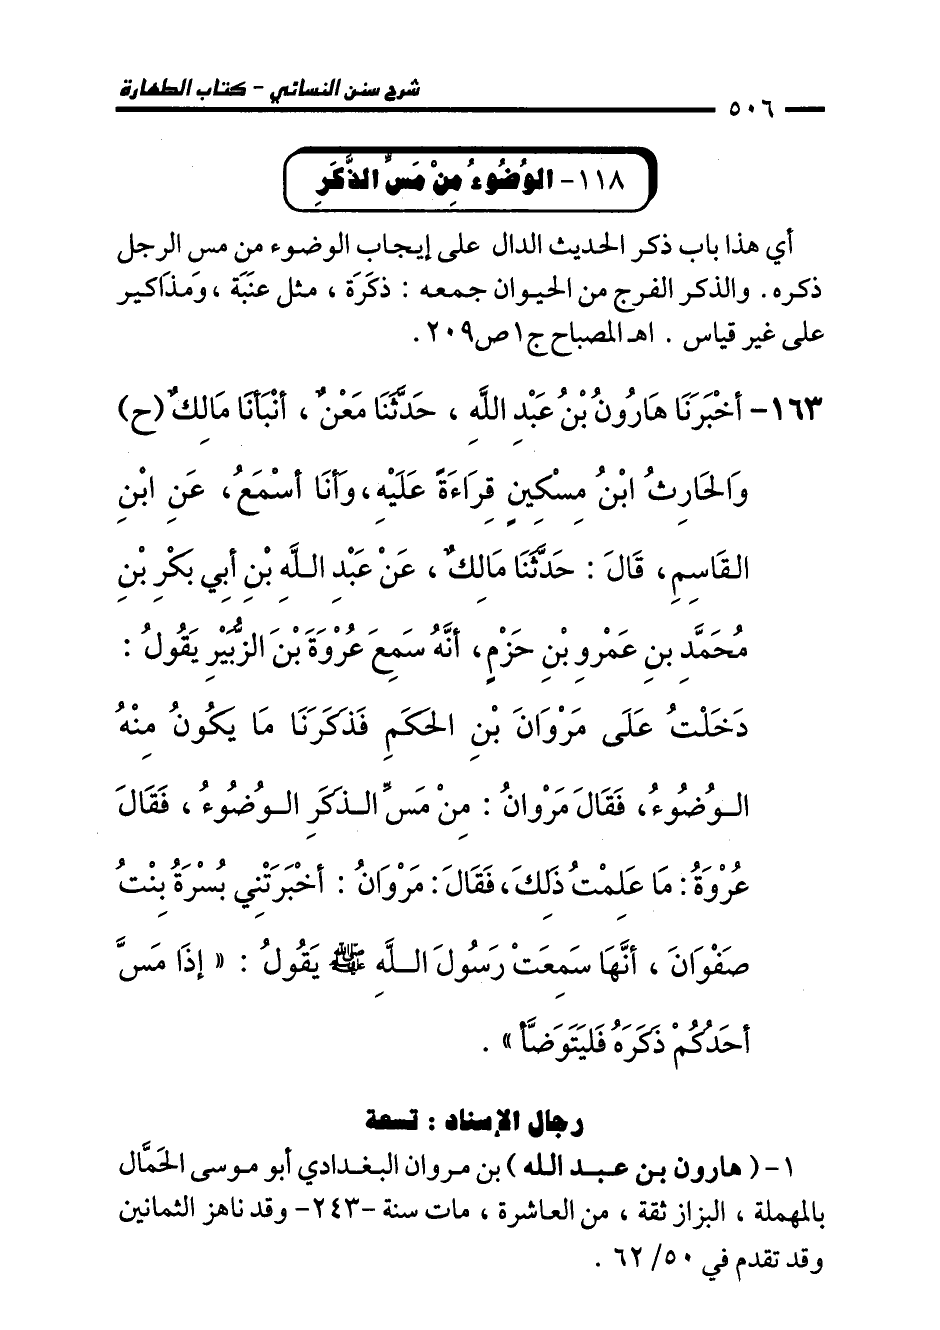 شرح سنن النسائي - كتاب الطهارة
٥٠٦
١١٨- الوُضُوءُ مِنْ مَسِّ الذَّكَرِ
أي هذا باب ذكر الحديث الدال على إيجاب الوضوء من مس الرجل
ذكره. والذكر الفرج من الحيوان جمعه : ذكَرَة ، مثل عنَبَة ، ومَذاكير
على غير قياس . اهـ المصباح ج١ص٢٠٩.
١٦٣- أخْبَرَنَا هَارُونُ بْنُ عَبْدِ اللَّهِ ، حَدَّثَنَا مَعْنٌ ، أنْبَأنَا مَالِكٌ (ح)
وَالحَارِثُ ابْنُ مِسْكِينٍ قِرَاءَةً عَلَيْهِ، وَأنَا أسْمَعُ، عَنِ ابْنِ
القَاسِمِ، قَالَ : حَدَّثَنَا مَالِكٌ، عَنْ عَبْدِ اللَّهِ بْنِ أبِي بَكْرِ بْنِ
مُحَمَّدِ بنِ عَمْرِو بْنِ حَزْمٍ، أنَّهُ سَمِعَ عُرْوَةَ بْنَ الزُّبَيْرِ يَقُولُ :
دَخَلْتُ عَلَى مَرْوَانَ بْنِ الحَكَمِ فَذَكَرَنَا مَا يَكُونُ مِنْهُ
الوُضُوءُ، فَقَالَ مَرْوَانُ : مِنْ مَسِّ الذكَرِ الوُضُوءُ ، فَقَالَ
عُرْوَةُ: مَا عَلِمْتُ ذَلِكَ، فَقَالَ: مَرْوَانُ : أخْبَرَتْنِي بُسْرَةُ بِنْتُ
صَفْوَانَ ، أنَّهَا سَمِعَتْ رَسُولَ اللَّهِ ﷺ يَقُولُ : « إذَا مَسَّ
أحَدُكُمْ ذَكَرَهُ فَليَتَوَضَّأ » .
رجال الإسناد : تسعة
١- ( هارون بن عبد الله ) بن مروان البغدادي أبو موسى الحَمَّال
بالمهملة ، البزاز ثقة ، من العاشرة ، مات سنة -٢٤٣- وقد ناهز الثمانين
وقد تقدم في ٥٠/ ٦٢ .